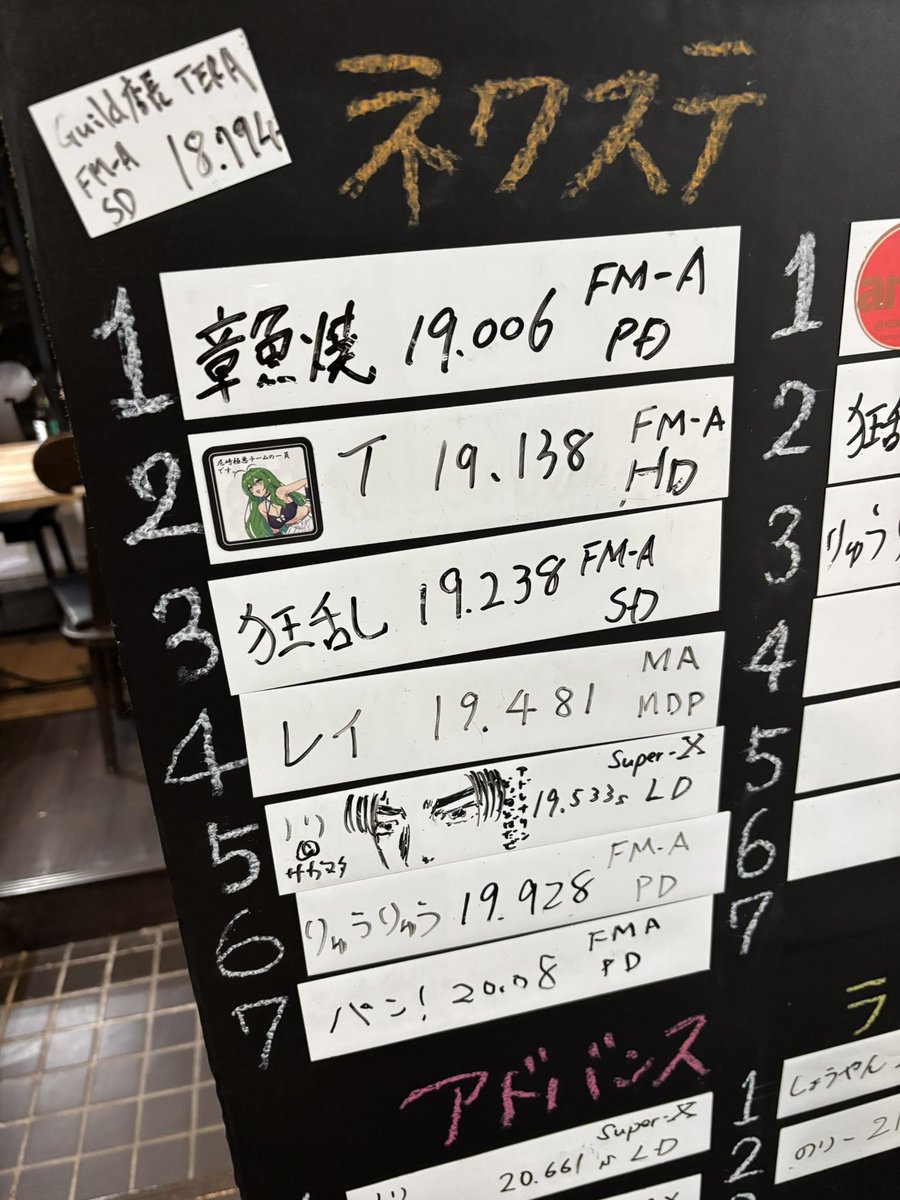 Guild店長 TERA
FM-A
SD
18.794
ネクステ
1
章魚焼 19.006 FM-A
PD
2
尾崎極悪チームの一員
です。
T 19.138 FM-A
HD
3
狂乱し 19.238 FM-A
SD
4
レイ 19.481 MA
MDP
5
サカマタ
19.533s Super-X
LD
6
りゅうりゅう 19.928 FM-A
PD
7
パン! 20.08 FMA
PD
アドバンス
20.661s Super-X
LD
1
2
狂乱
3
りゅう
4
5
6
7
ラ
1
しょうやん
2
のりー 21